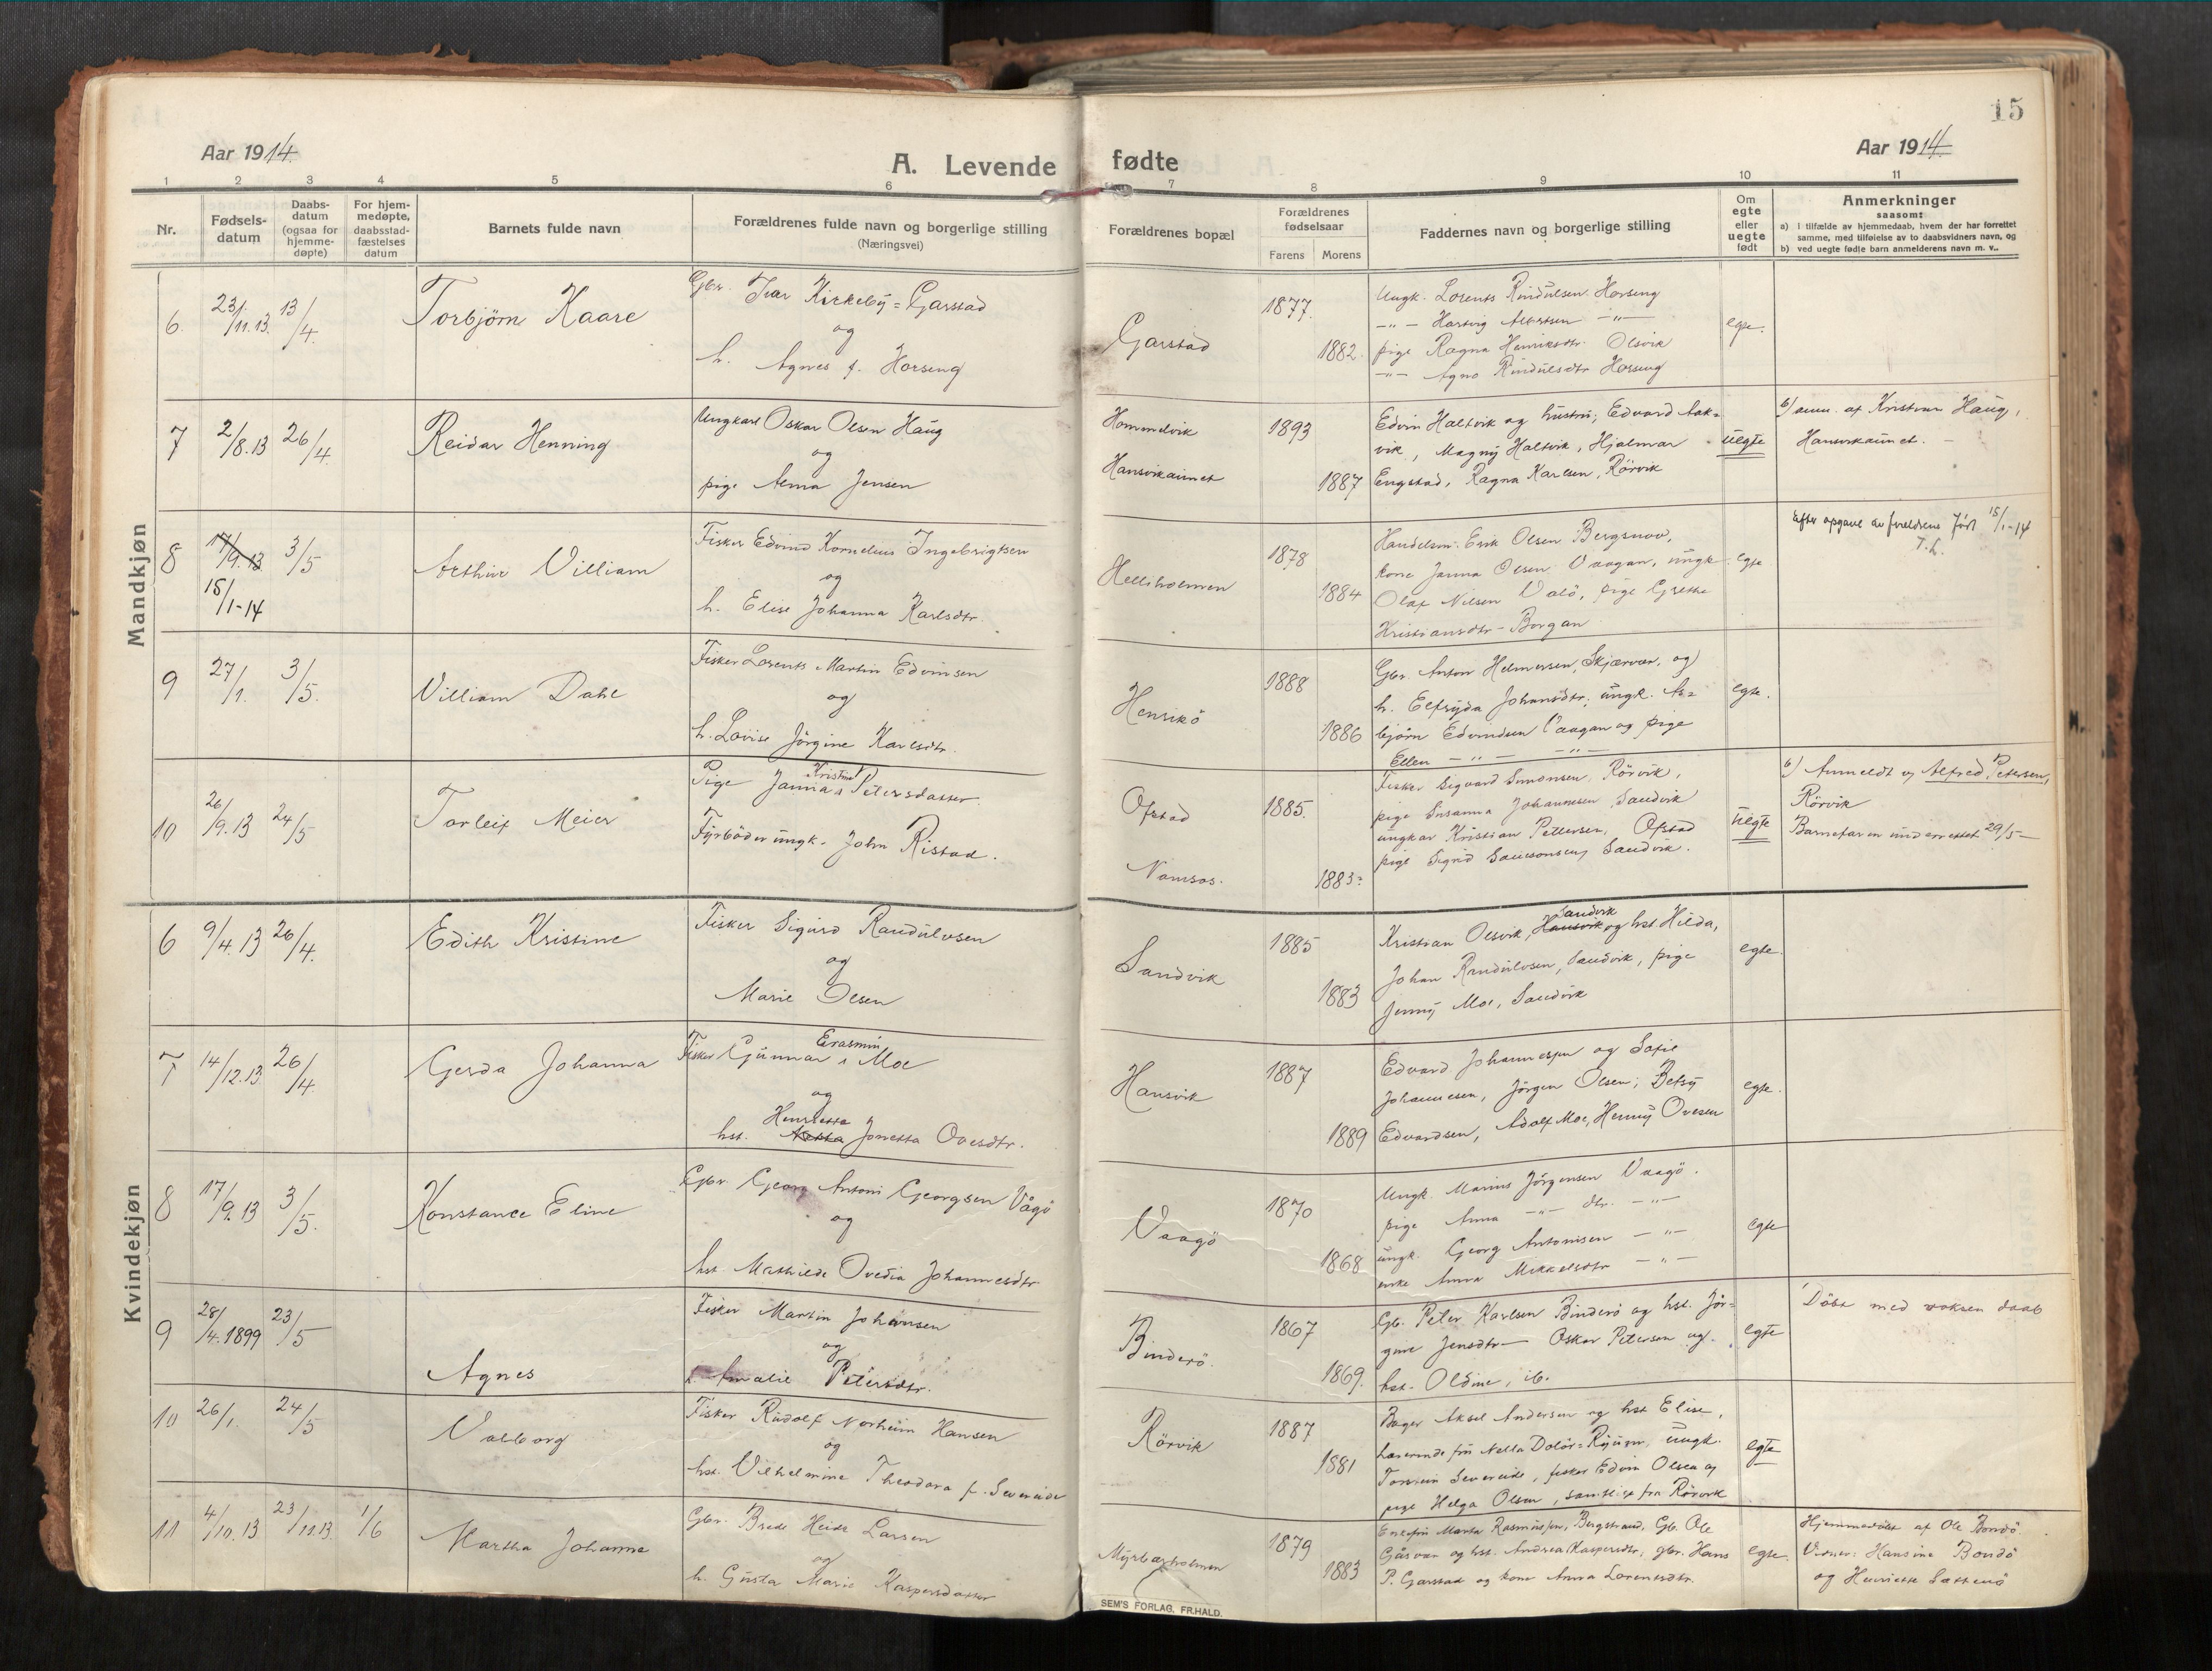 15
Aar 1914.
A. Levende fødte
Aar 1914.
1 2 3 4 5 6 7 8 9 10 11
Nr.
Fødsels-
datum
Daabs-
datum
(ogsaa for
hjemme-
døpte)
For hjem-
medøpte,
daabsstad-
fæstelses
datum
Barnets fulde navn
Forældrenes fulde navn og borgerlige stilling
(Næringsvei)
Forældrenes bopæl
Forældrenes
fødselsaar
Farens Morens
Faddernes navn og borgerlige stilling
Om
egte
eller
uegte
født
Anmerkninger
saasom:
a) i tilfælde av hjemmedaab, hvem der har forrettet
samme, med tilføielse av to daabsvidners navn, og
b) ved uegte fødte barn anmelderens navn m. v..
Mandkjøn
6. 23/11.13. 13/4. Torbjörn Kaare
Gbr. Ivar Kirkeby=Garstad
og
h. Agnes f. Horseng
Garstad
1877.
1882.
Ungk. Lorents Rindulsen Horseng
-"- Hartvig Albertsen -"-
pige Ragna Henriksdtr. Olsvik
-"- Agna Rindulsdtr Horseng
egte.
7 2/8.13 26/4. Reidar Henning
Ungkarl Oskar Olsen Haug
og
pige Anna Jensen
Hommelvik
Hansvikaunet
1893
1887
Edvin Haltvik og hustru; Edvard Aak=
vik, Magny Haltvik, Hjalmar
Engstad, Ragna Karlsen, Rörvik
uegte
b) anm. af Kristian Haug,
Hansvikaunet. -
8 17/9.13 3/5
15/1-14
Arthur William
Fisker Edvind Kornelius Ingebrigtsen
og
h. Elise Johanna Karlsdtr.
Helliholmen
1878
1884
Handelsm. Erik Olsen Bergsnov,
kone Janna Olsen Vaagan, ungk.
Olaf Nilsen Valö, pige Grethe
Kristiansdtr - Borgan
egte
Efter opgave av foreldrene født 15/1-14
T.L.
9 27/1. 3/5. William Dahl
Fisker Lorents Martin Edvinsen
og
h. Lovise Jörgine Karlsdtr.
Henrikö
1888
1886
Gbr. Anton Helmersen, Skjærvær, og
h. Elfryda Johansdtr; ungk. As=
björn Edvindsen Vaagan og pige
Ellen -"-
egte.
10 26/9.13 24/5 Torleif Meier
Pige Janna Kristine Petersdatter.
Fyrböder ungk. John Ristad.
Ofstad
Namsos.
1885.
1883?
Fisker Sigvard Simonsen, Rörvik,
pige Susanna Johannesen Sandvik
ungkar Kristian Pettersen, Ofstad
pige Sigrid Samsonsen, Sandvik.
uegte
b) Anmeldt af Alfred Petersen,
Rörvik
Barnefaren underrettet 29/5 -
Kvindekjøn
6 9/4.13 26/4. Edith Kristine
Fisker Sigurd Randulvsen
og
Marie Olsen
Sandvik
1885
1883
Sandvik
Kristian Olsvik, Hansvik og hst. Hilda,
Johan Randulvsen, Sandvik, pige
Jenny Moe, Sandvik
egte.
7 14/12.13 26/4. Gerda Johanna
Fisker Gunnar Erasmin Moe
og
Henrietta
hst. Netta Jonetta Ovesdtr.
Hansvik
1887
1889
Edvard Johannesen og Sofie
Johannesen, Jörgen Olsen; Betsy
Edvardsen, Adolf Moe, Henny Ovesen
egte.
8 17/9.13 3/5. Konstance Eline
Gbr. Georg Antoni Georgsen Vågö
og
hst. Mathilde Ovedia Johannesdtr
Vaagö
1870
1868
Ungk. Marius Jörgensen Vaagö.
pige Anna -"- dtr. -"-
ungk. Georg Antonisen -"-
enke Anna Mikkelsdtr -"-
egte
9 28/4.1899 23/5 Agnes
Fisker Martin Johansen
og
h. Amalie Petersdtr.
Binderö.
1867
1869.
Gb. Peter Karlsen Binderö og hst. Jör=
gine Jensdtr - Oskar Petersen og
hst. Oldine, ib.
egte
Döbt med voksen daab
10 26/1. 24/5 Valborg
Fisker Rudolf Norheim Hansen
og
hst. Vilhelmine Theodora f. Severeide
Rörvik
1887
1881
Bager Aksel Andersen og hst Elise,
Lærerinde frü Netta Dolör=Ryum, ungk.
Torstein Severeide, fisker Edvin Olsen og
pige Helga Olsen, samtlige fra Rörvik
egte
11 4/10.13 23/11.13. 1/6 Martha Johanne
Gbr. Brede Heide Larsen
og
h. Gusta Marie Kaspersdatter
Myrbærholmen
1879
1883
Enkefru Marta Rasmussen, Bergstrand, Gb. Ole
Gåsvær og hst. Andrea Kaspersdtr, gbr. Hans
P. Garstad og kone Anna Lorentsdtr.
egte.
Hjemmedöbt af Ole Bondö.
Vidner: Hansine Bondö
og Henriette Sættenö
SEM'S FORLAG, FR.HALD.